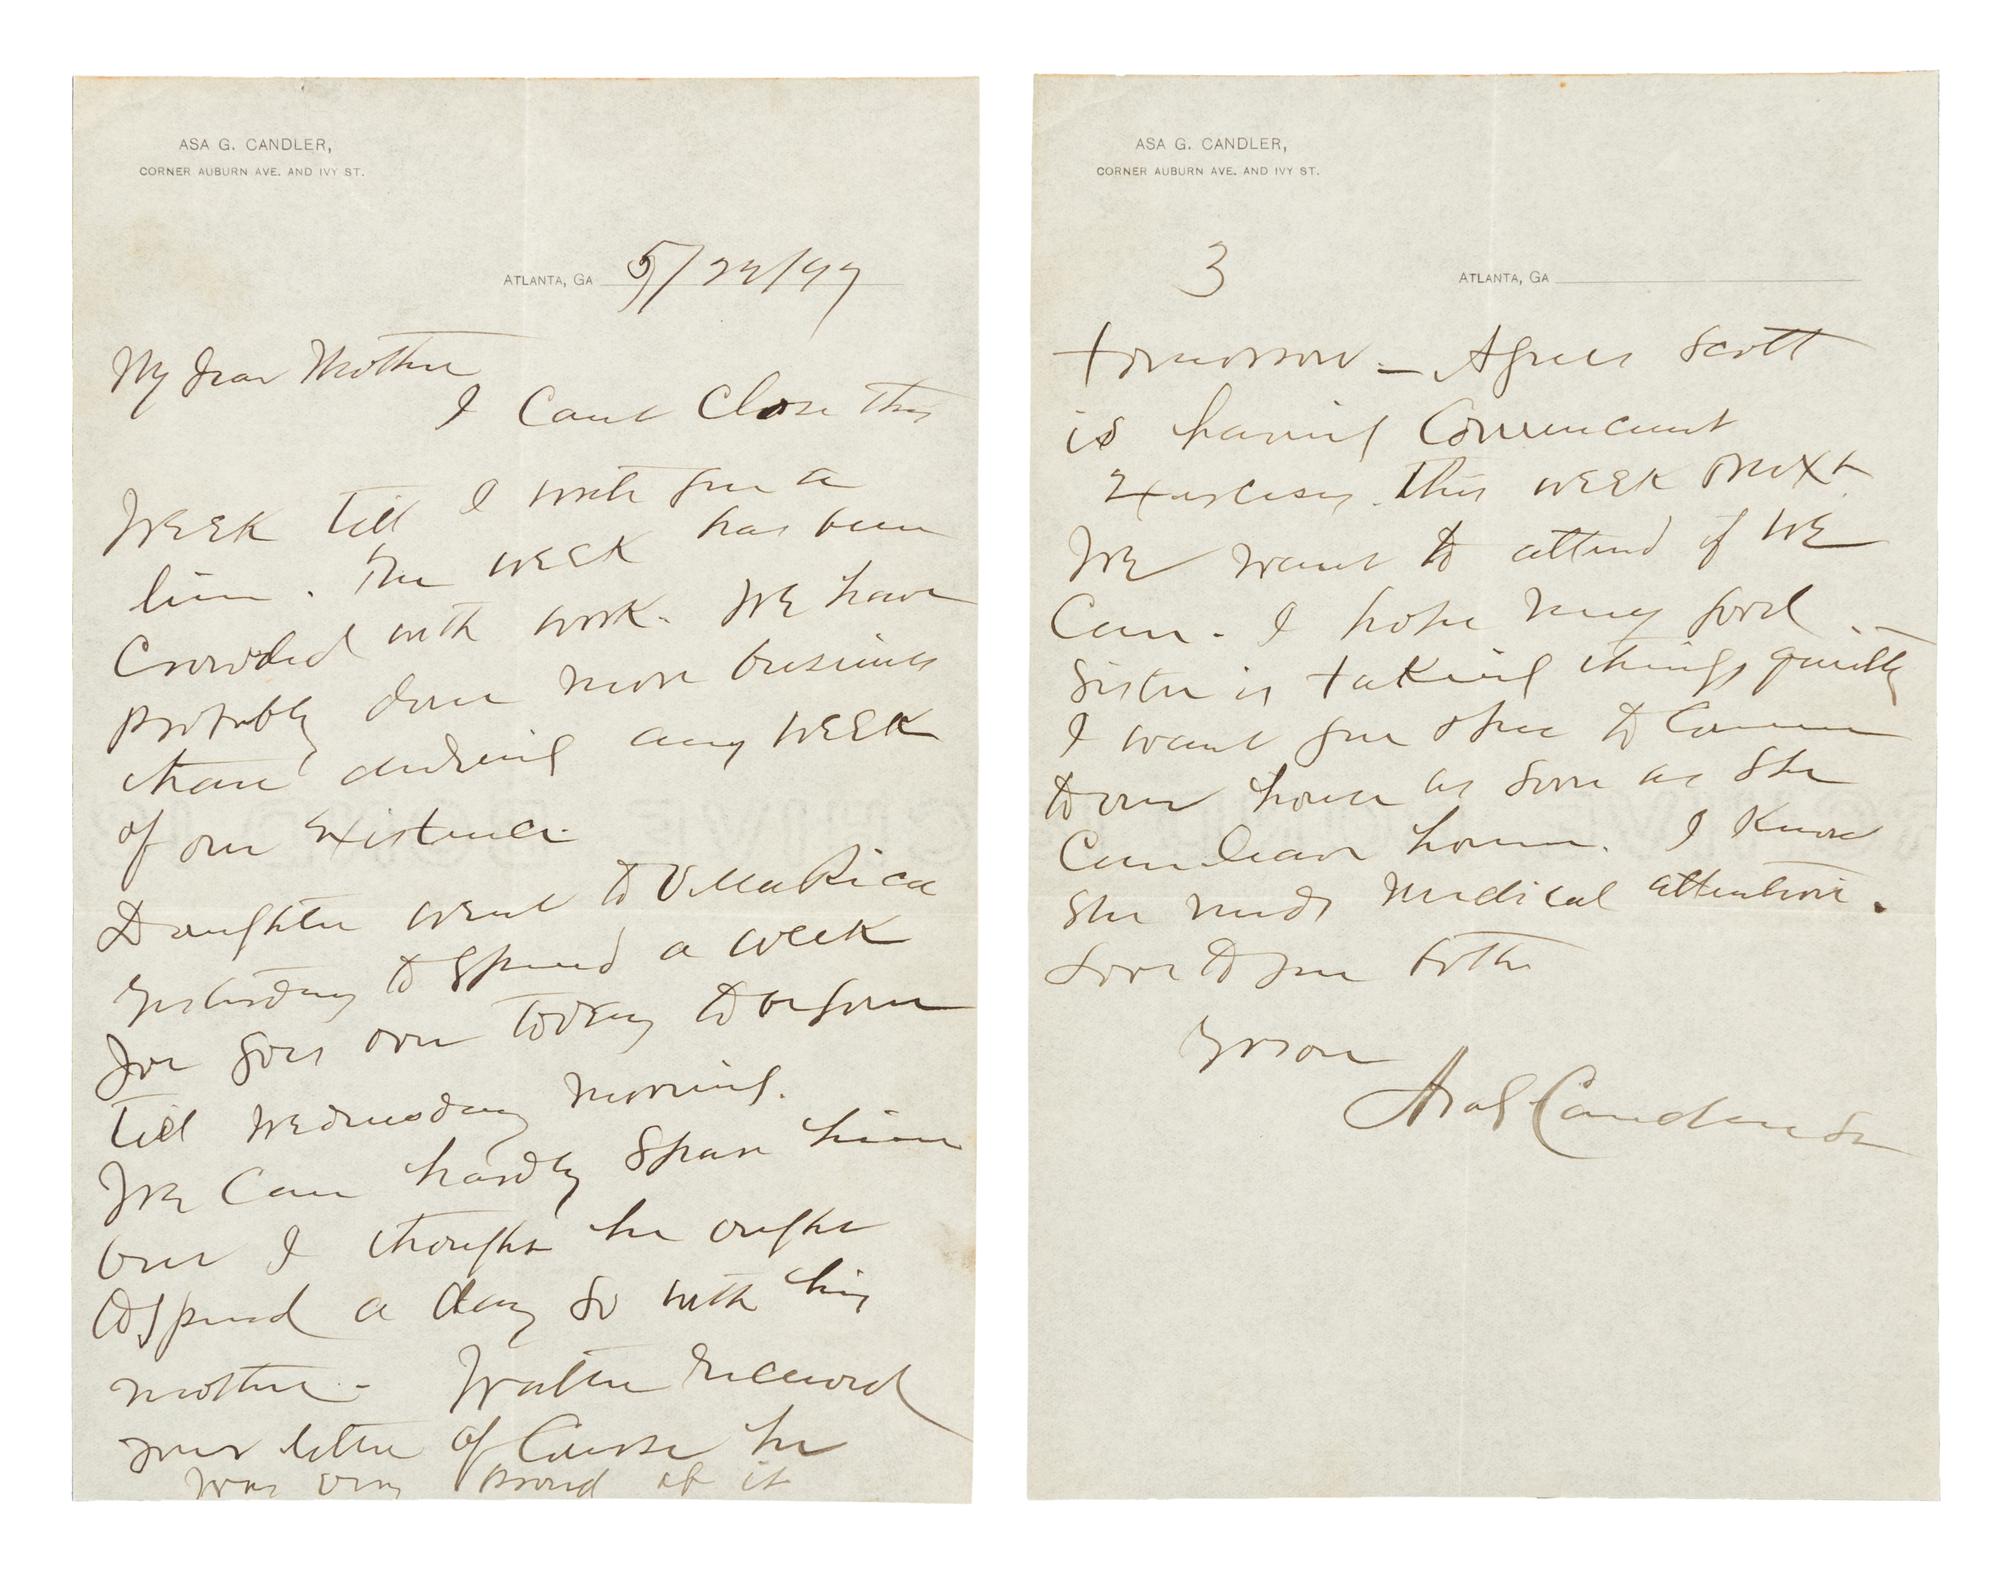 ASA G. CANDLER,
CORNER AUBURN AVE. AND IVY ST.
ATLANTA, GA 5/29/97
My Dear Mother
I Cant Close this
WEEK till I write you a
line. The WEEK has been
Crowded with work. WE have
probably done more business
than during any WEEK
of our Existence.
Daughter went to Villa Rica
yesterday to spend a week
Joe goes over today to be gone
till Wednesday morning.
We Can hardly Spare him
but I thought he ought
to spend a day so with his
mother - Walter received
your letter of Course he
was very proud of it
ASA G. CANDLER,
CORNER AUBURN AVE. AND IVY ST.
3
ATLANTA, GA
tomorrow - Agnes Scott
is having Commencment
Exercises. This week next
We want to attend if WE
Can. I hope my good
Sister is taking things quietly
I want you to Come
to our house as soon as She
Can leave home. I Know
She needs Medical attention.
Love to you both
Yr son
Asa G Candler Sr